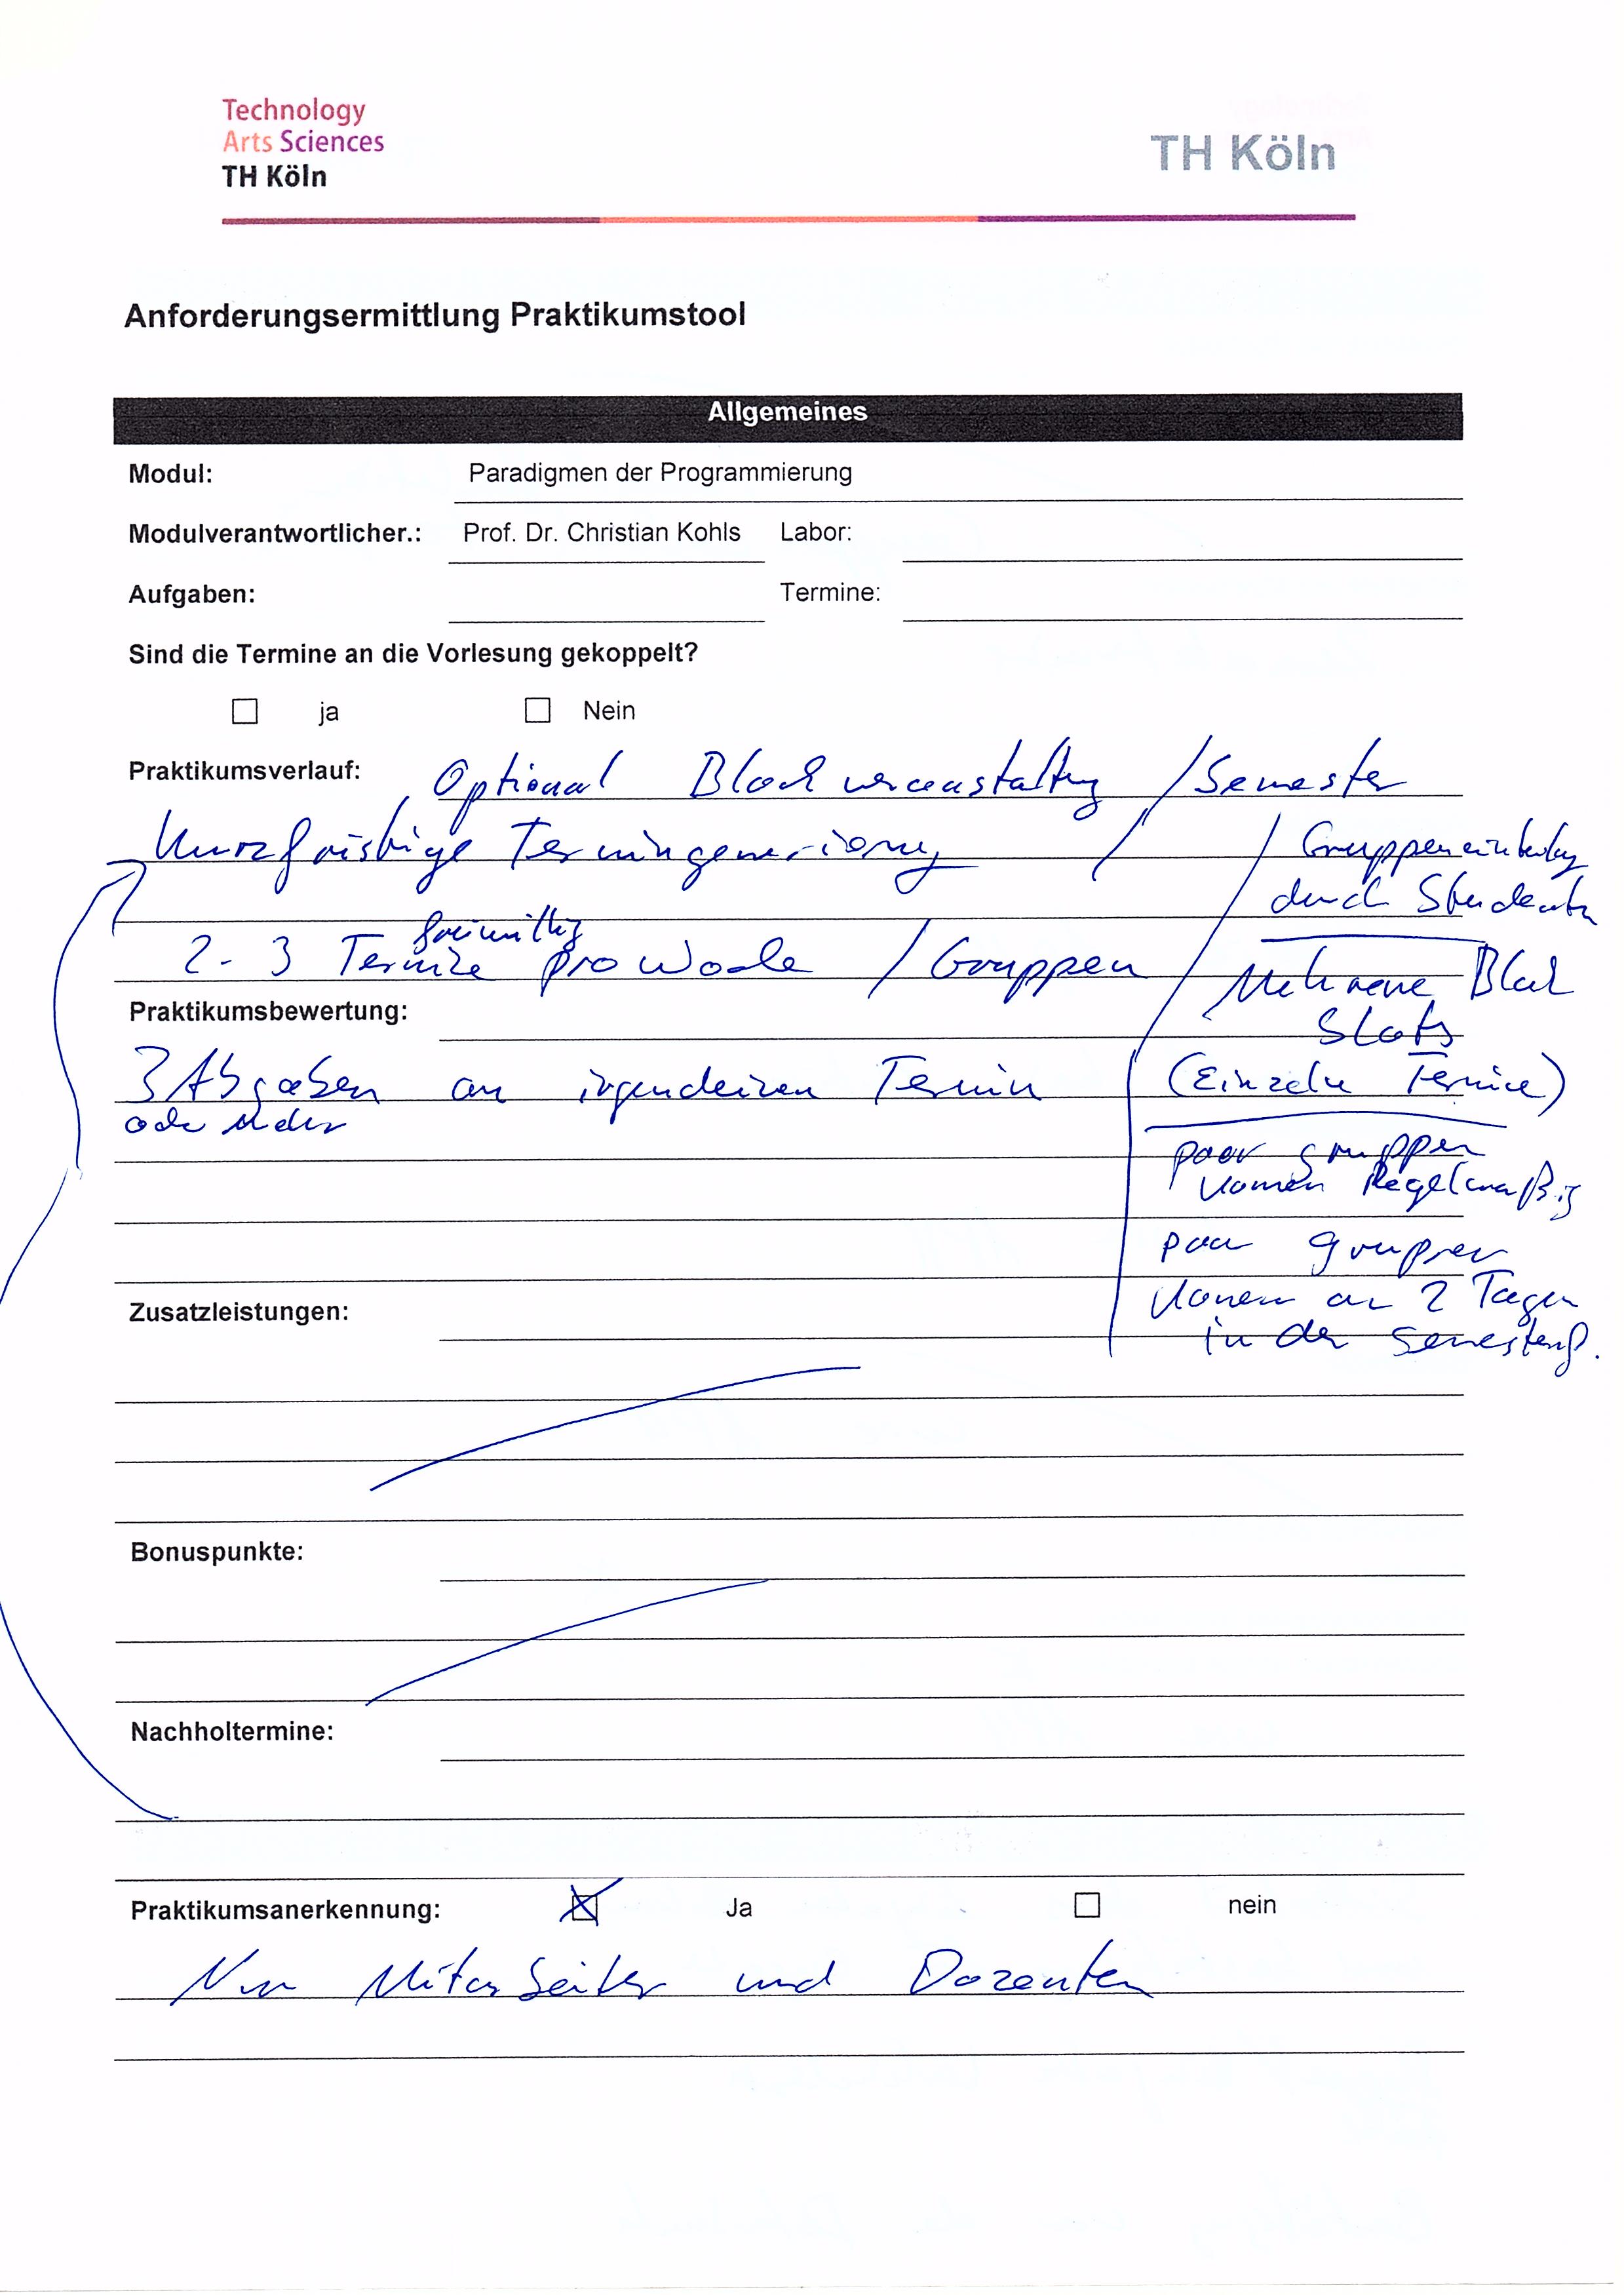 Technology
Arts Sciences
TH Köln
TH Köln
Anforderungsermittlung Praktikumstool
Allgemeines
Modul: Paradigmen der Programmierung
Modulverantwortlicher.: Prof. Dr. Christian Kohls Labor:
Aufgaben: Termine:
Sind die Termine an die Vorlesung gekoppelt?
ja Nein
Praktikumsverlauf: Optional Blockveranstaltung / Semester
Kurzfristige Termingenerierung /
freiwillig
2-3 Termine pro Woche / Gruppen
/ Gruppeneinteilung
durch Studenten
Mehrere Block
Slots
(Einzeln Termine)
paar gruppen
komen Regelmäßig
paar gruppen
komen an 2 Tagen
in der Semesterf.
Praktikumsbewertung:
3 Abgaben an irgendeinen Termin
oder Mehr
Zusatzleistungen:
Bonuspunkte:
Nachholtermine:
Praktikumsanerkennung: Ja nein
Nur Mitarbeiter und Dozenten